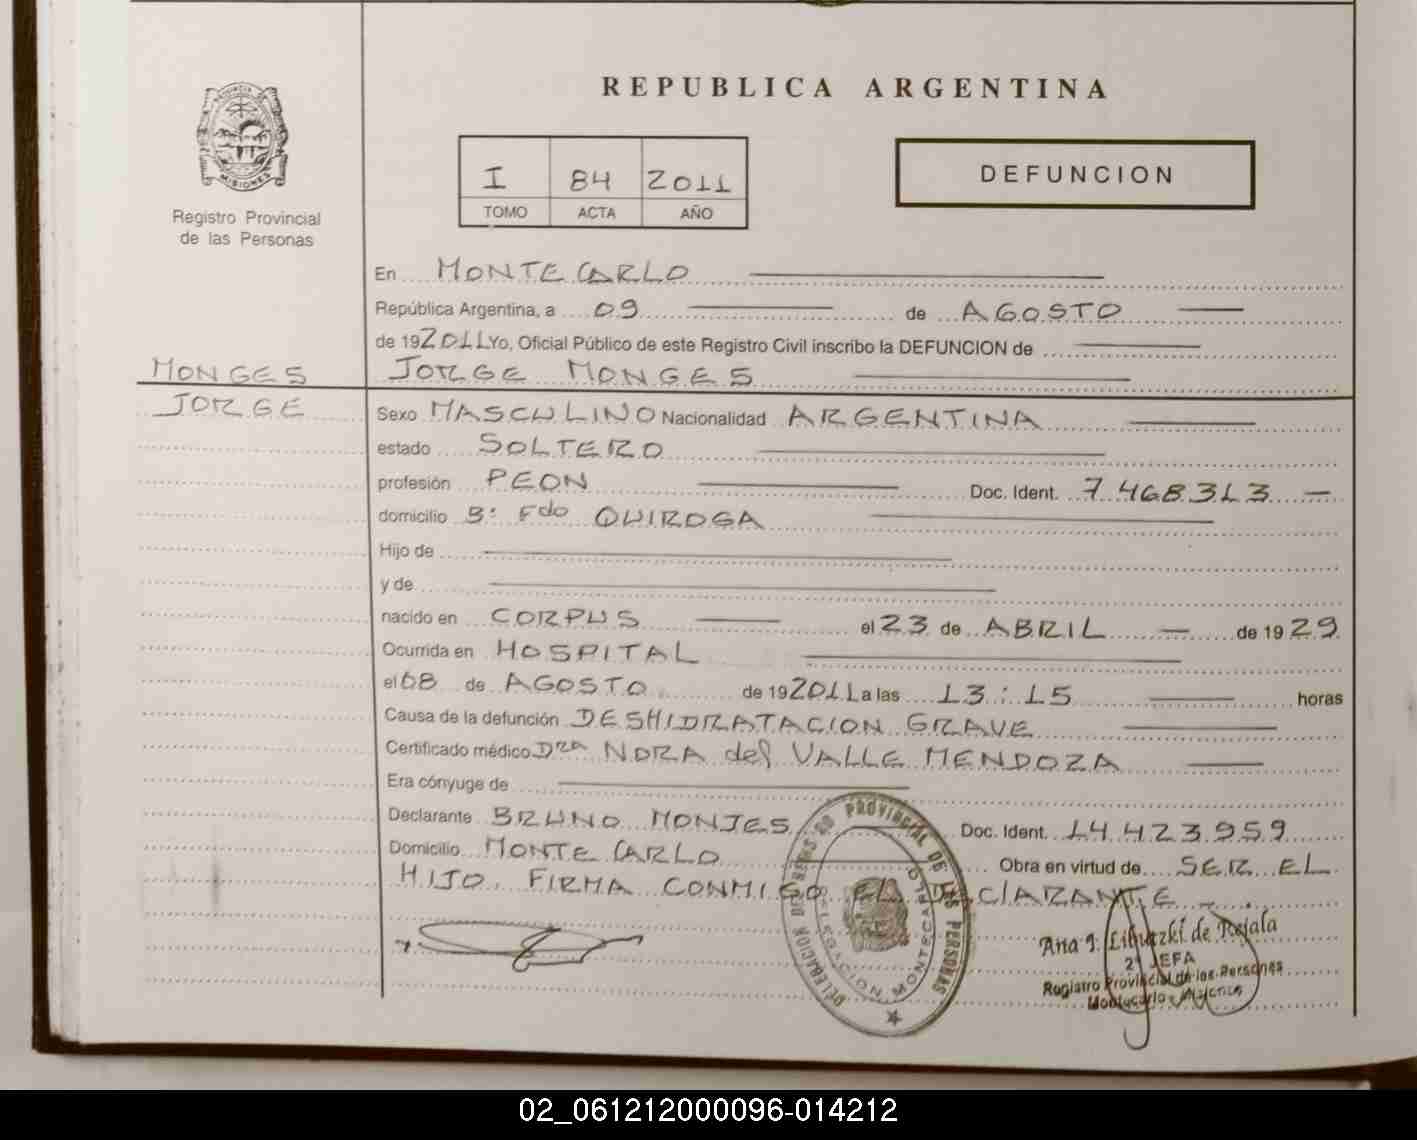 REPUBLICA ARGENTINA
PROVINCIA DE
MISIONES
Registro Provincial
de las Personas
I 84 2011
TOMO ACTA AÑO
DEFUNCION
En MONTECARLO
República Argentina, a 09 de AGOSTO
de 192011 Yo, Oficial Público de este Registro Civil inscribo la DEFUNCION de
MONGES
JORGE MONGES
JORGE
Sexo MASCULINO Nacionalidad ARGENTINA
estado SOLTERO
profesión PEON Doc. Ident. 7.468.313
domicilio B: Fdo QUIROGA
Hijo de
y de
nacido en CORPUS el 23 de ABRIL de 1929
Ocurrida en HOSPITAL
el 08 de AGOSTO de 192011 a las 13:15 horas
Causa de la defunción DESHIDRATACION GRAVE
Certificado médico Dra NORA del VALLE MENDOZA
Era cónyuge de
Declarante BRUNO MONJES Doc. Ident. 14.423.959
Domicilio MONTECARLO Obra en virtud de SER EL
HIJO. FIRMA CONMIGO EL DEClARANTE
PROVINCIAL DE LAS PERSONAS
DELEGACION MONTECARLO
Ana I. de Rejala
2ª JEFA
Registro Provincial de las Personas
Montecarlo - Misiones
02_061212000096-014212